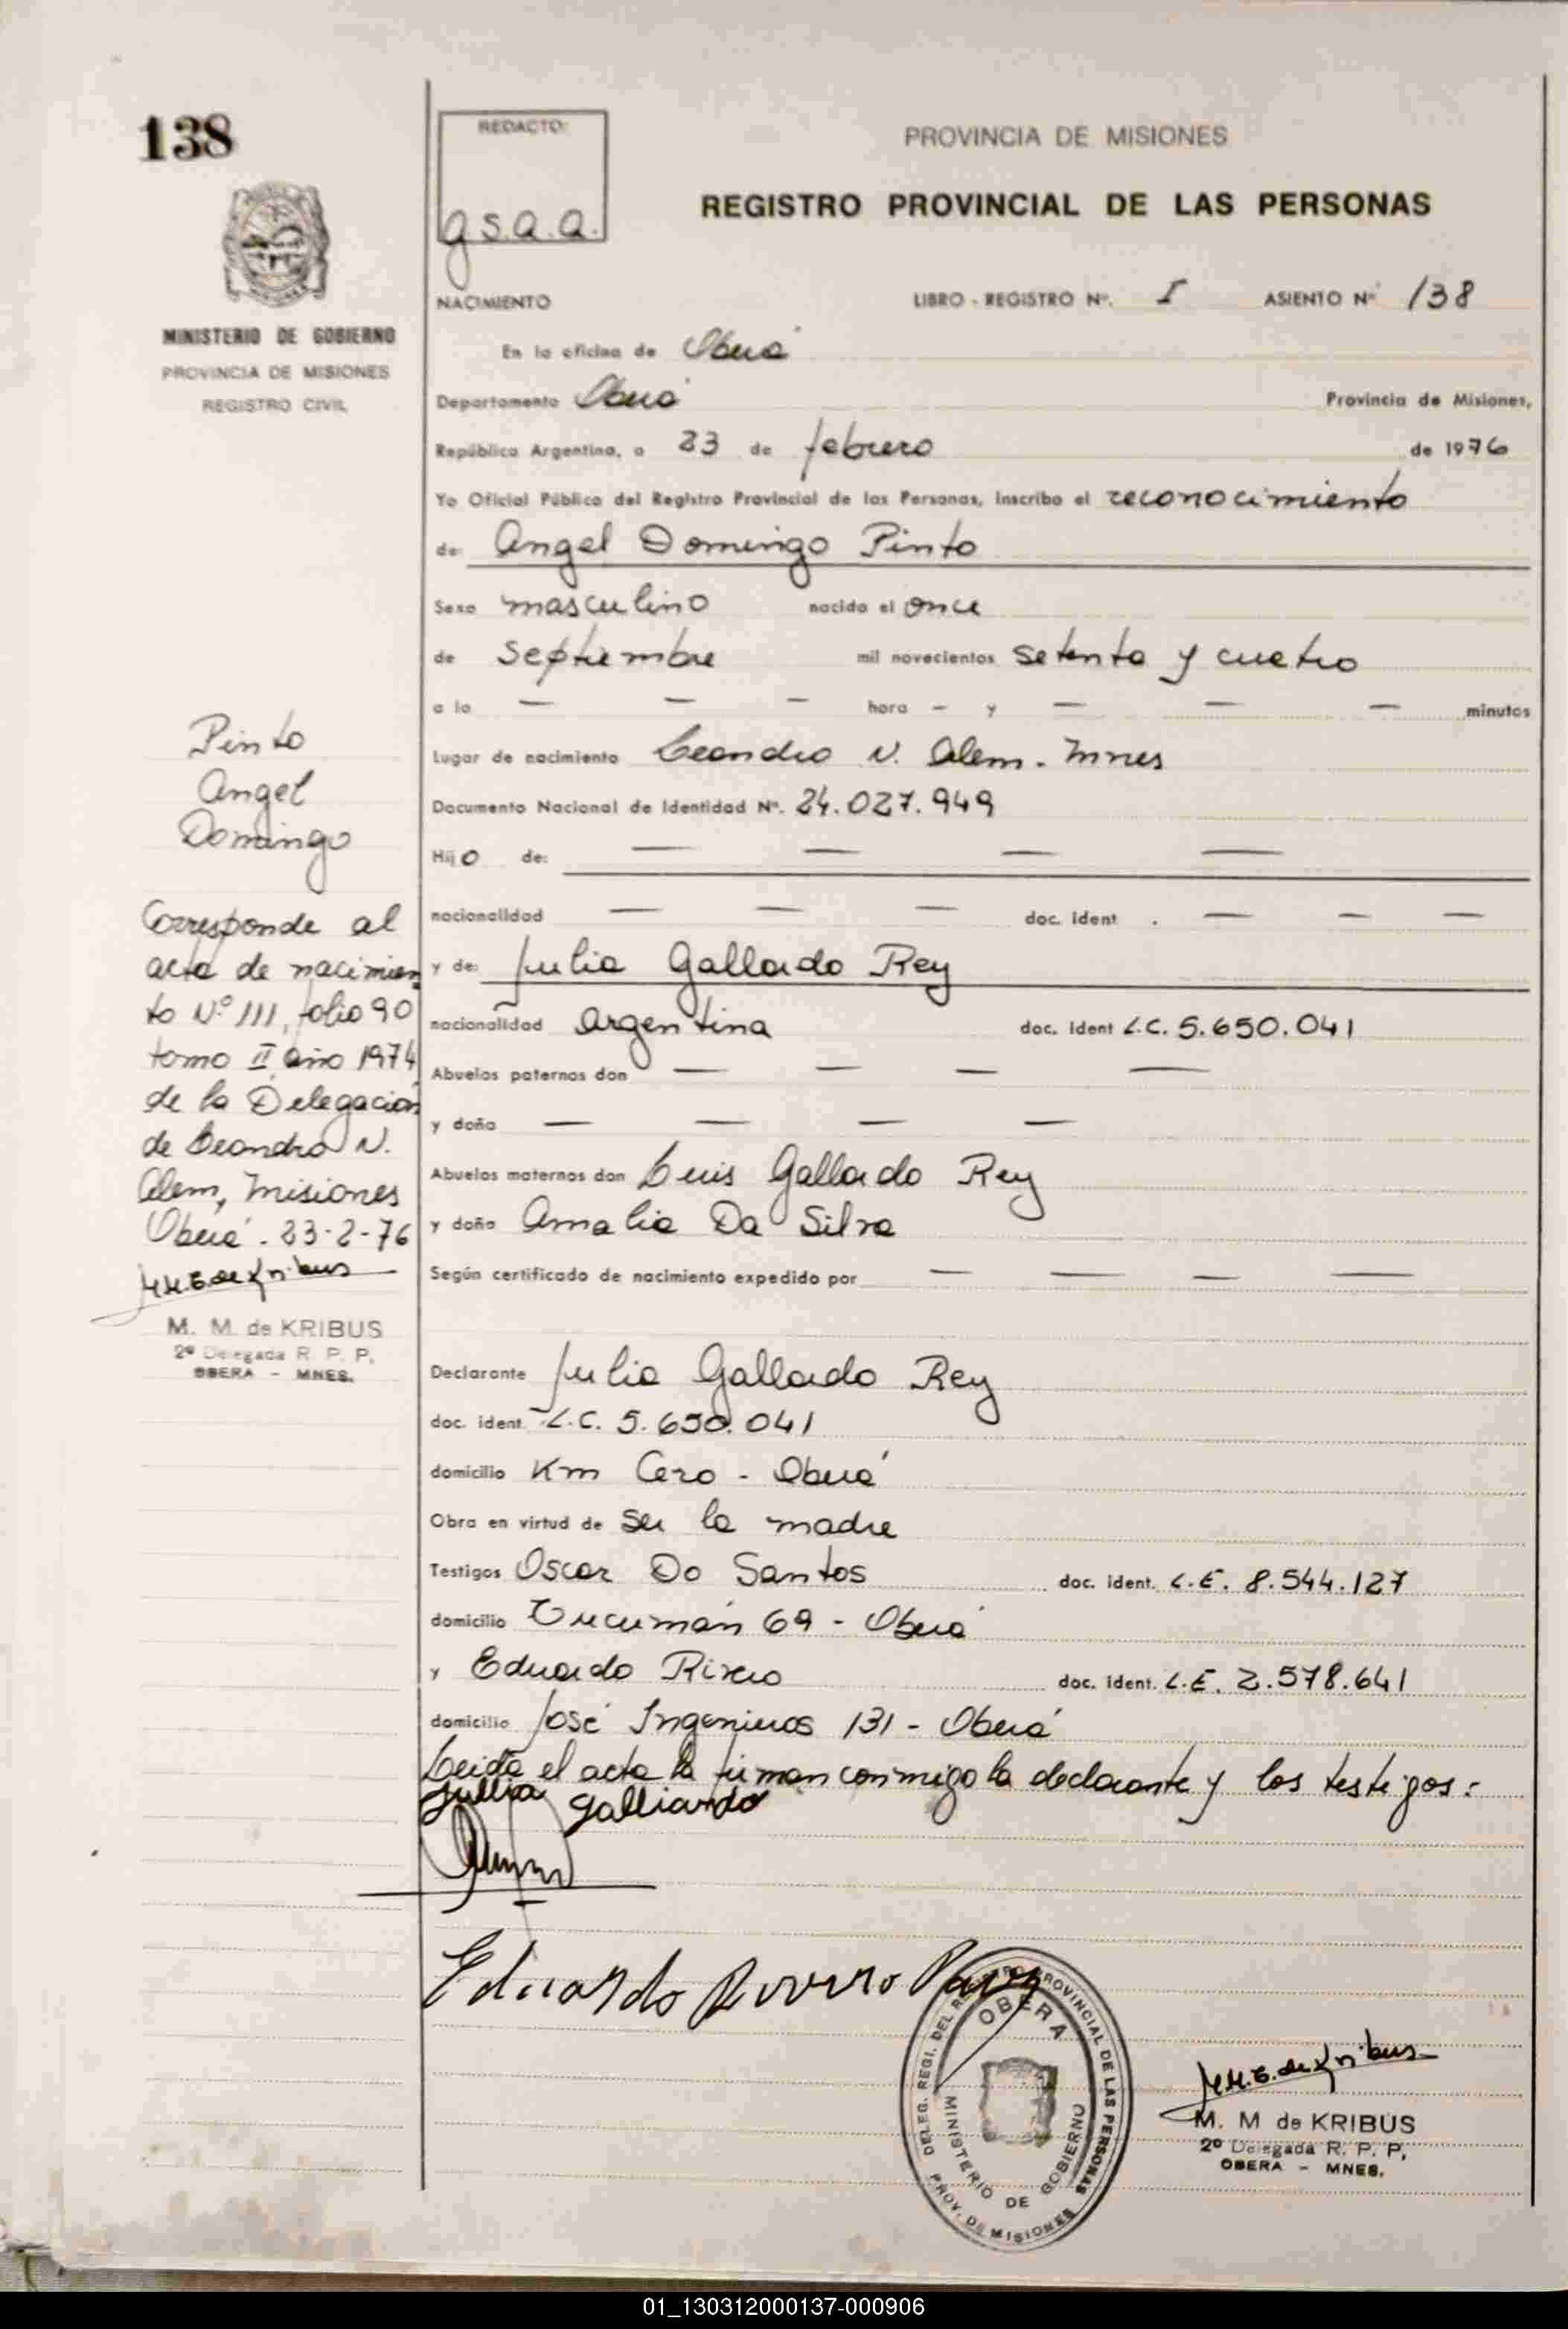 138
MINISTERIO DE GOBIERNO
PROVINCIA DE MISIONES
REGISTRO CIVIL
Pinto
Angel
Domingo
Corresponde al
acta de nacimien
to Nº 111, folio 90
tomo II año 1974
de la Delegación
de Leandro N.
Alem, Misiones
Oberá. 23-2-76
M.M.G. de Kribus
M. M. de KRIBUS
2º Delegada R. P. P.
OBERA - MNES.
REDACTO:
g s.a.a.
PROVINCIA DE MISIONES
REGISTRO PROVINCIAL DE LAS PERSONAS
NACIMIENTO LIBRO - REGISTRO Nº. I ASIENTO Nº 138
En la oficina de Oberá
Departamento Oberá Provincia de Misiones,
República Argentina, a 23 de febrero de 1976
Yo Oficial Público del Registro Provincial de las Personas, inscribo el reconocimiento
de: Angel Domingo Pinto
Sexo masculino nacido el once
de septiembre mil novecientos setenta y cuatro
a la — — — hora - y — — — minutos
Lugar de nacimiento Leandro N. Alem - Mnes
Documento Nacional de Identidad Nº. 24.027.949
Hijo de: — — — —
nacionalidad — — — doc. ident. — — —
y de: Julia Gallardo Rey
nacionalidad Argentina doc. ident L.C. 5.650.041
Abuelos paternos don — — — —
y doña — — — —
Abuelos maternos don Luis Gallardo Rey
y doña Amalia Da Silva
Según certificado de nacimiento expedido por — — — —
Declarante Julia Gallardo Rey
doc. ident. L.C. 5.650.041
domicilio Km Cero - Oberá
Obra en virtud de ser la madre
Testigos Oscar Do Santos doc. ident. L.E. 8.544.127
domicilio Tucumán 69 - Oberá
y Eduardo Rivero doc. ident. L.E. 2.578.641
domicilio José Ingenieros 131 - Oberá
Leida el acta la firman conmigo la declarante y los testigos:
Jullia galliardo
Eduardo Rivero
DELEG. REGI. DEL REGISTRO PROVINCIAL DE LAS PERSONAS
OBERA
MINISTERIO DE GOBIERNO
PROV. DE MISIONES
M.M.G. de Kribus
M. M de KRIBUS
2º Delegada R. P. P.
OBERA - MNES.
01_130312000137-000906